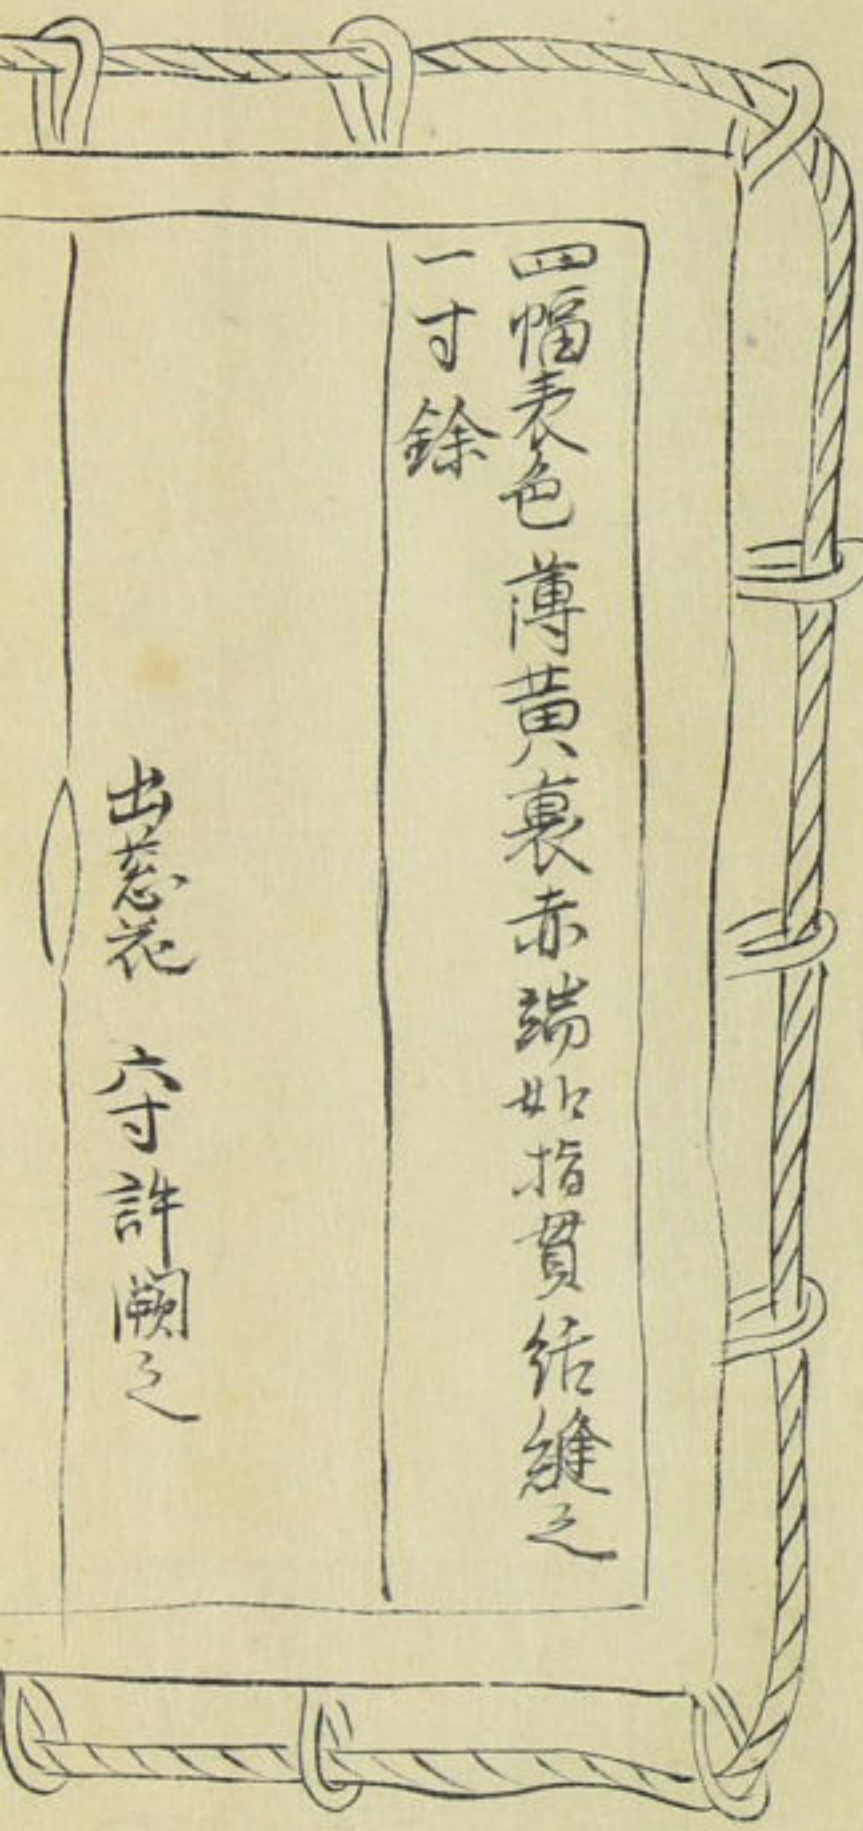 四幅表色薄黄裏赤端如指貫括縫之
一寸餘
出葱花 六寸許闕之